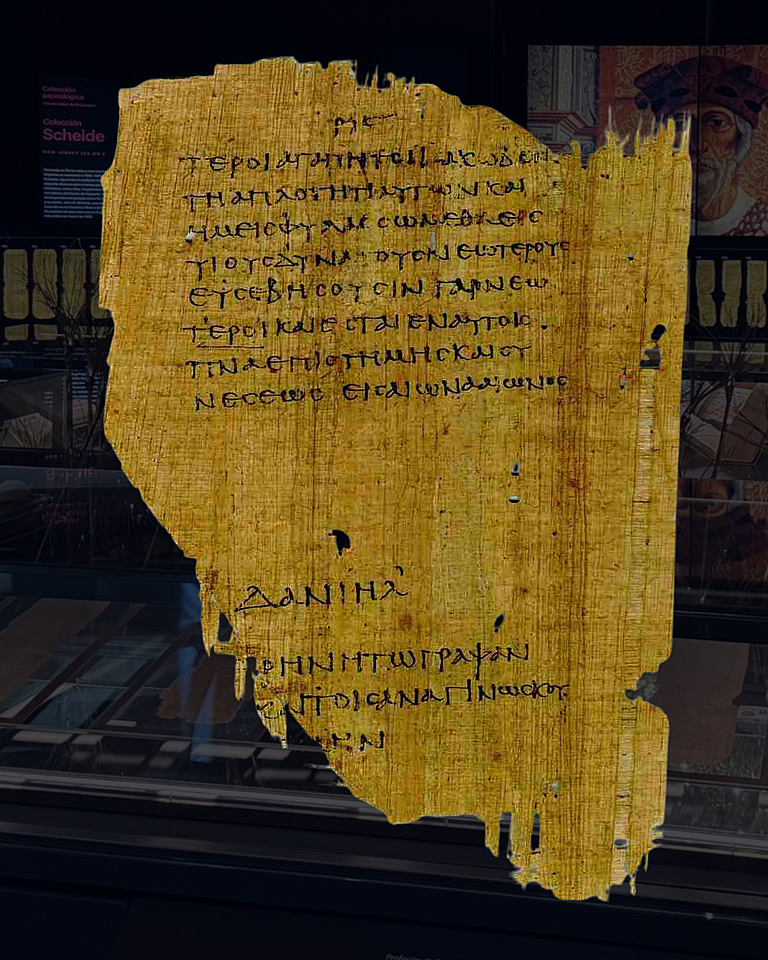 Colección
papirológica
Universidad de Princeton
Colección
Scheide
ΤΕΡΟΙ ΑΓΑΠΗΤΟΙ ΙΑΚΩΒ ΕΝ
ΤΗ ΑΠΛΟΤΗΤΙ ΑΥΤΩΝ ΚΑΙ
ΗΜΕΙϹ ΦΥΛΑϹϹΩΜΕΘΑ ΕΙϹ
ΥΙΟΥϹ ΔΥΝΑΤΟΥϹ ΝΕΩΤΕΡΟΥϹ
ΕΥϹΕΒΗϹΟΥϹΙΝ ΓΑΡ ΝΕΩ
ΤΕΡΟΙ ΚΑΙ ΕϹΤΑΙ ΕΝ ΑΥΤΟΙϹ
ΠΝΑ ΕΠΙϹΤΗΜΗϹ ΚΑΙ ϹΥ
ΝΕϹΕΩϹ ΕΙϹ ΑΙΩΝΑ ΑΙΩΝΟϹ
ΔΑΝΙΗΛ
ΡΗΝΗ ΤΩ ΓΡΑΨΑΝ
ΤΟΙϹ ΑΝΑΓΙΝΩϹΚΟΥ
ΗΝ